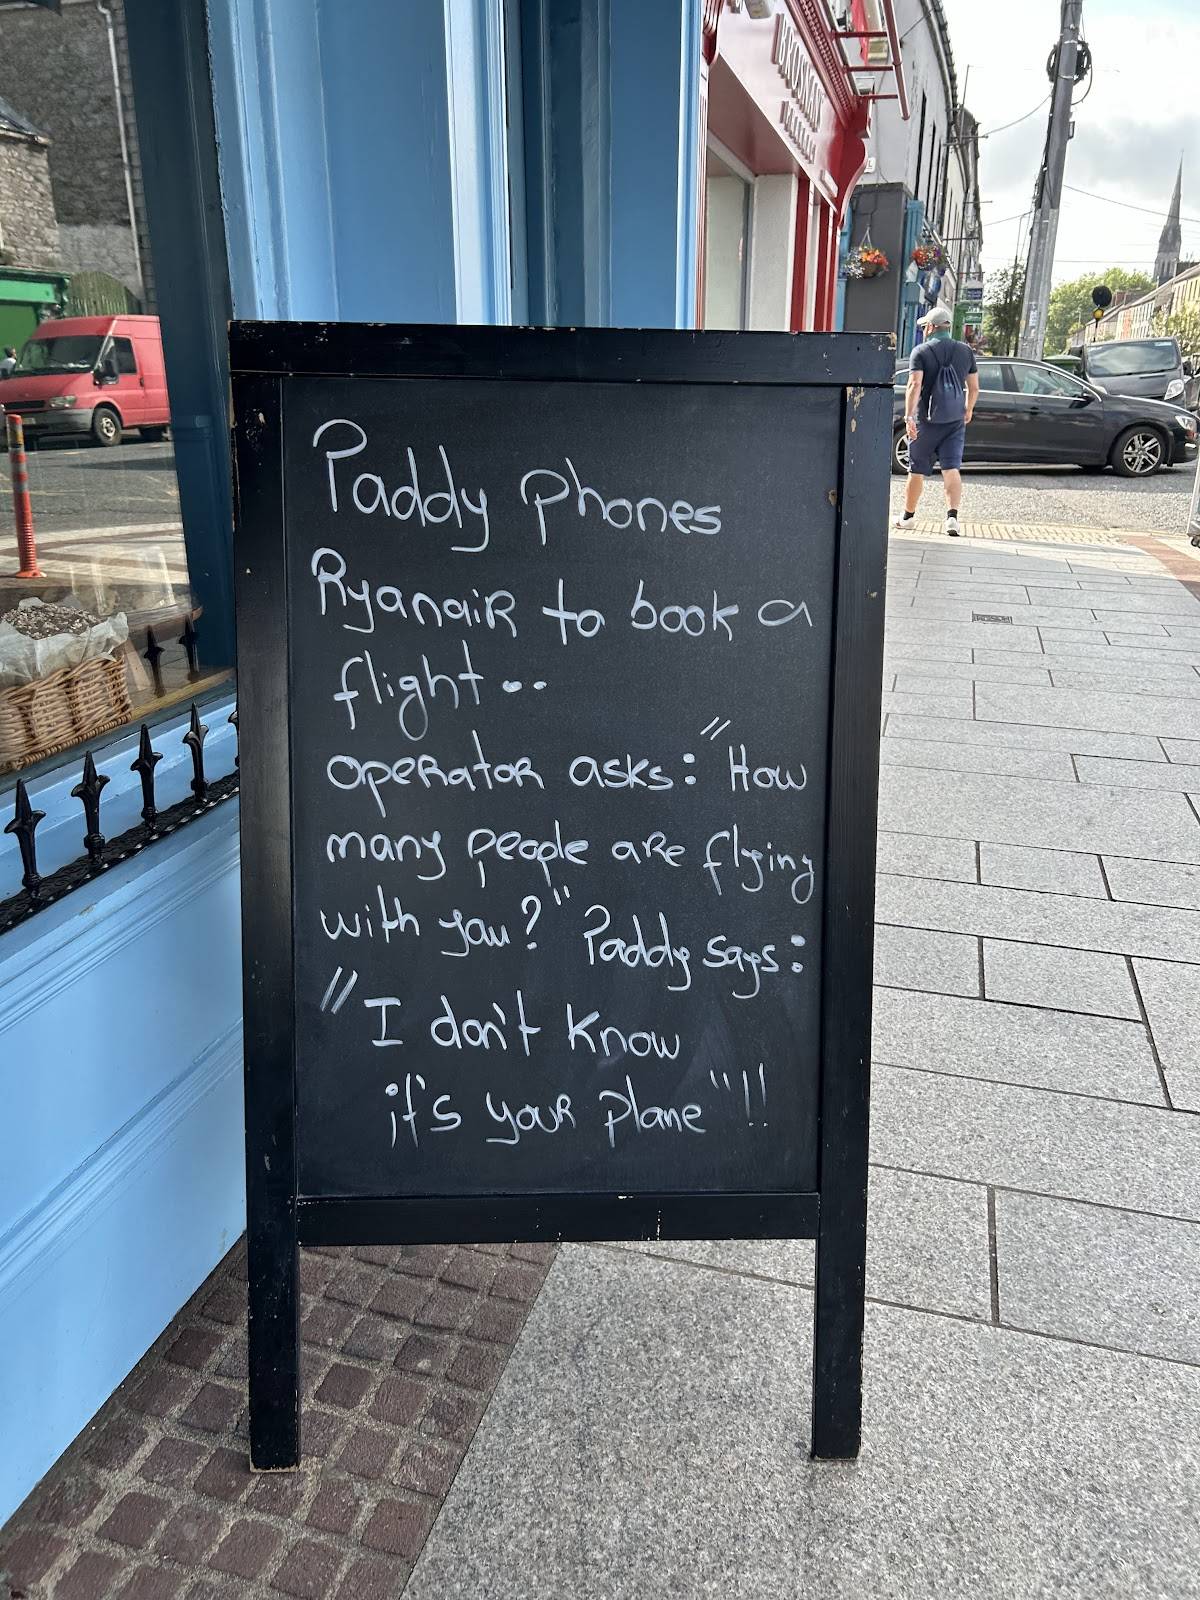 Paddy phones
Ryanair to book a
flight..
operator asks: "How
many people are flying
with you?" Paddy says:
"I don't know
it's your plane"!!
BROSNAN